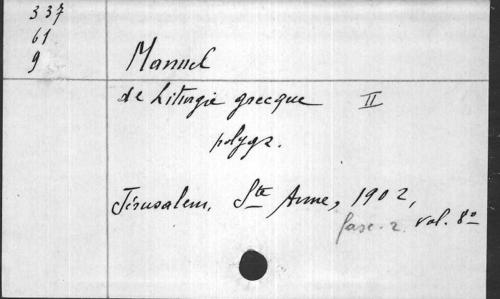 337
61
9
Manuel
de Liturgie grecque II
polygr.
Jérusalem, Ste Anne, 1902,
fasc. 2. vol. 8º